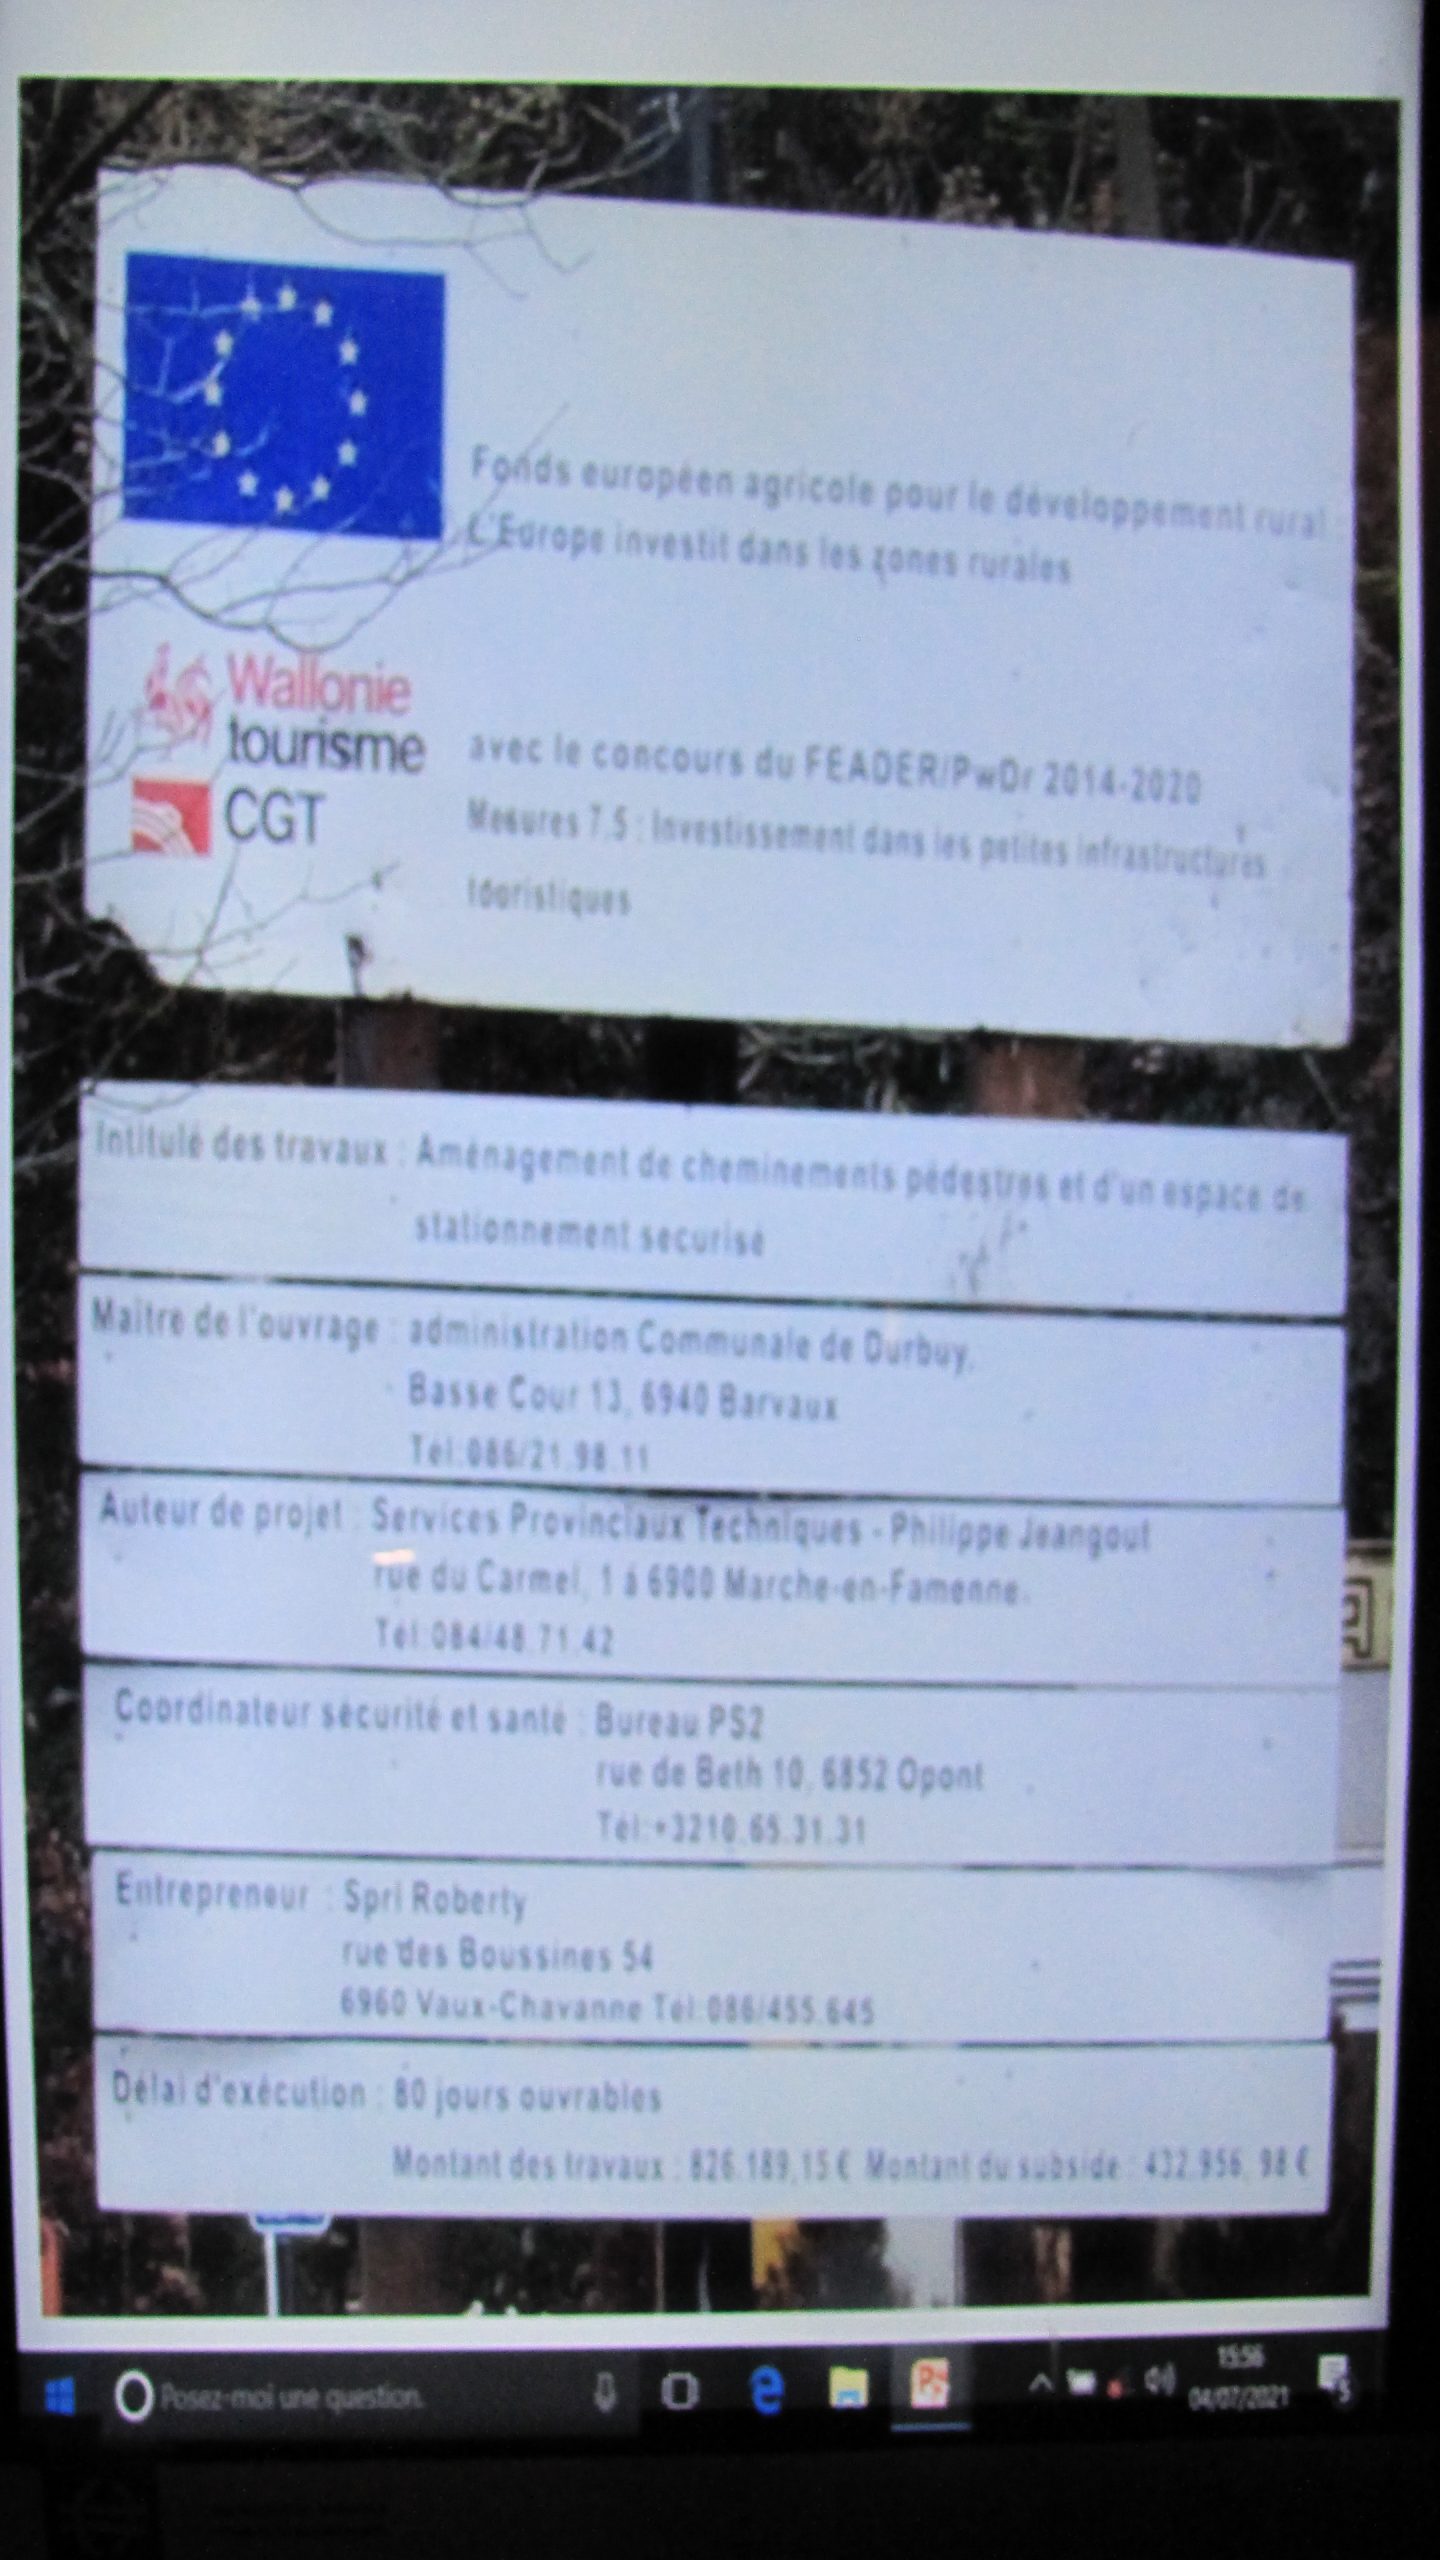 Fonds européen agricole pour le développement rural :
L'Europe investit dans les zones rurales
Wallonie
tourisme
CGT
avec le concours du FEADER/PwDr 2014-2020
Mesures 7.5 : Investissement dans les petites infrastructures
touristiques
Intitulé des travaux : Aménagement de cheminements pédestres et d'un espace de
stationnement securisé
Maître de l'ouvrage : administration Communale de Durbuy,
Basse Cour 13, 6940 Barvaux
Tél:086/21.98.11
Auteur de projet : Services Provinciaux Techniques - Philippe Jeangout
rue du Carmel, 1 à 6900 Marche-en-Famenne.
Tél:084/48.71.42
Coordinateur sécurité et santé : Bureau PS2
rue de Beth 10, 6852 Opont
Tél:+3210.65.31.31
Entrepreneur : Sprl Roberty
rue des Boussines 54
6960 Vaux-Chavanne Tél:086/455.645
Délai d'exécution : 80 jours ouvrables
Montant des travaux : 826.189,15 € Montant du subside : 432.956, 98 €
Posez-moi une question.
15:56
04/07/2021
5